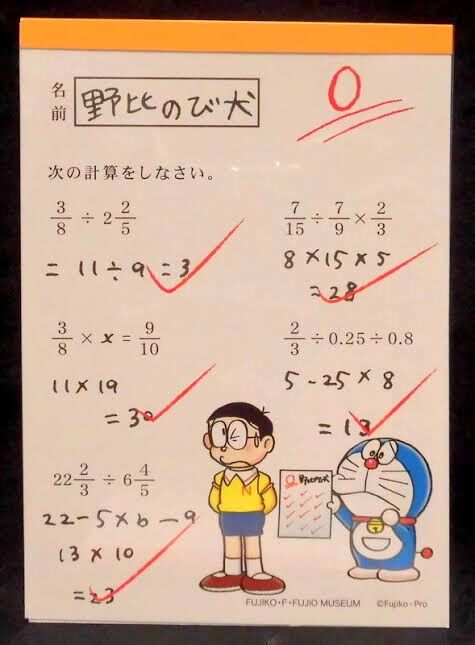 名前 野比のび犬
0
次の計算をしなさい。
3/8 ÷ 2 2/5
= 11÷9 = 3
7/15 ÷ 7/9 × 2/3
8×15×5
=28
3/8 × x = 9/10
11×19
=30
2/3 ÷0.25÷0.8
5-25×8
=13
22 2/3 ÷ 6 4/5
22-5×6-9
13×10
=23
0 野比のび犬
N
FUJIKO・F・FUJIO MUSEUM ©Fujiko-Pro